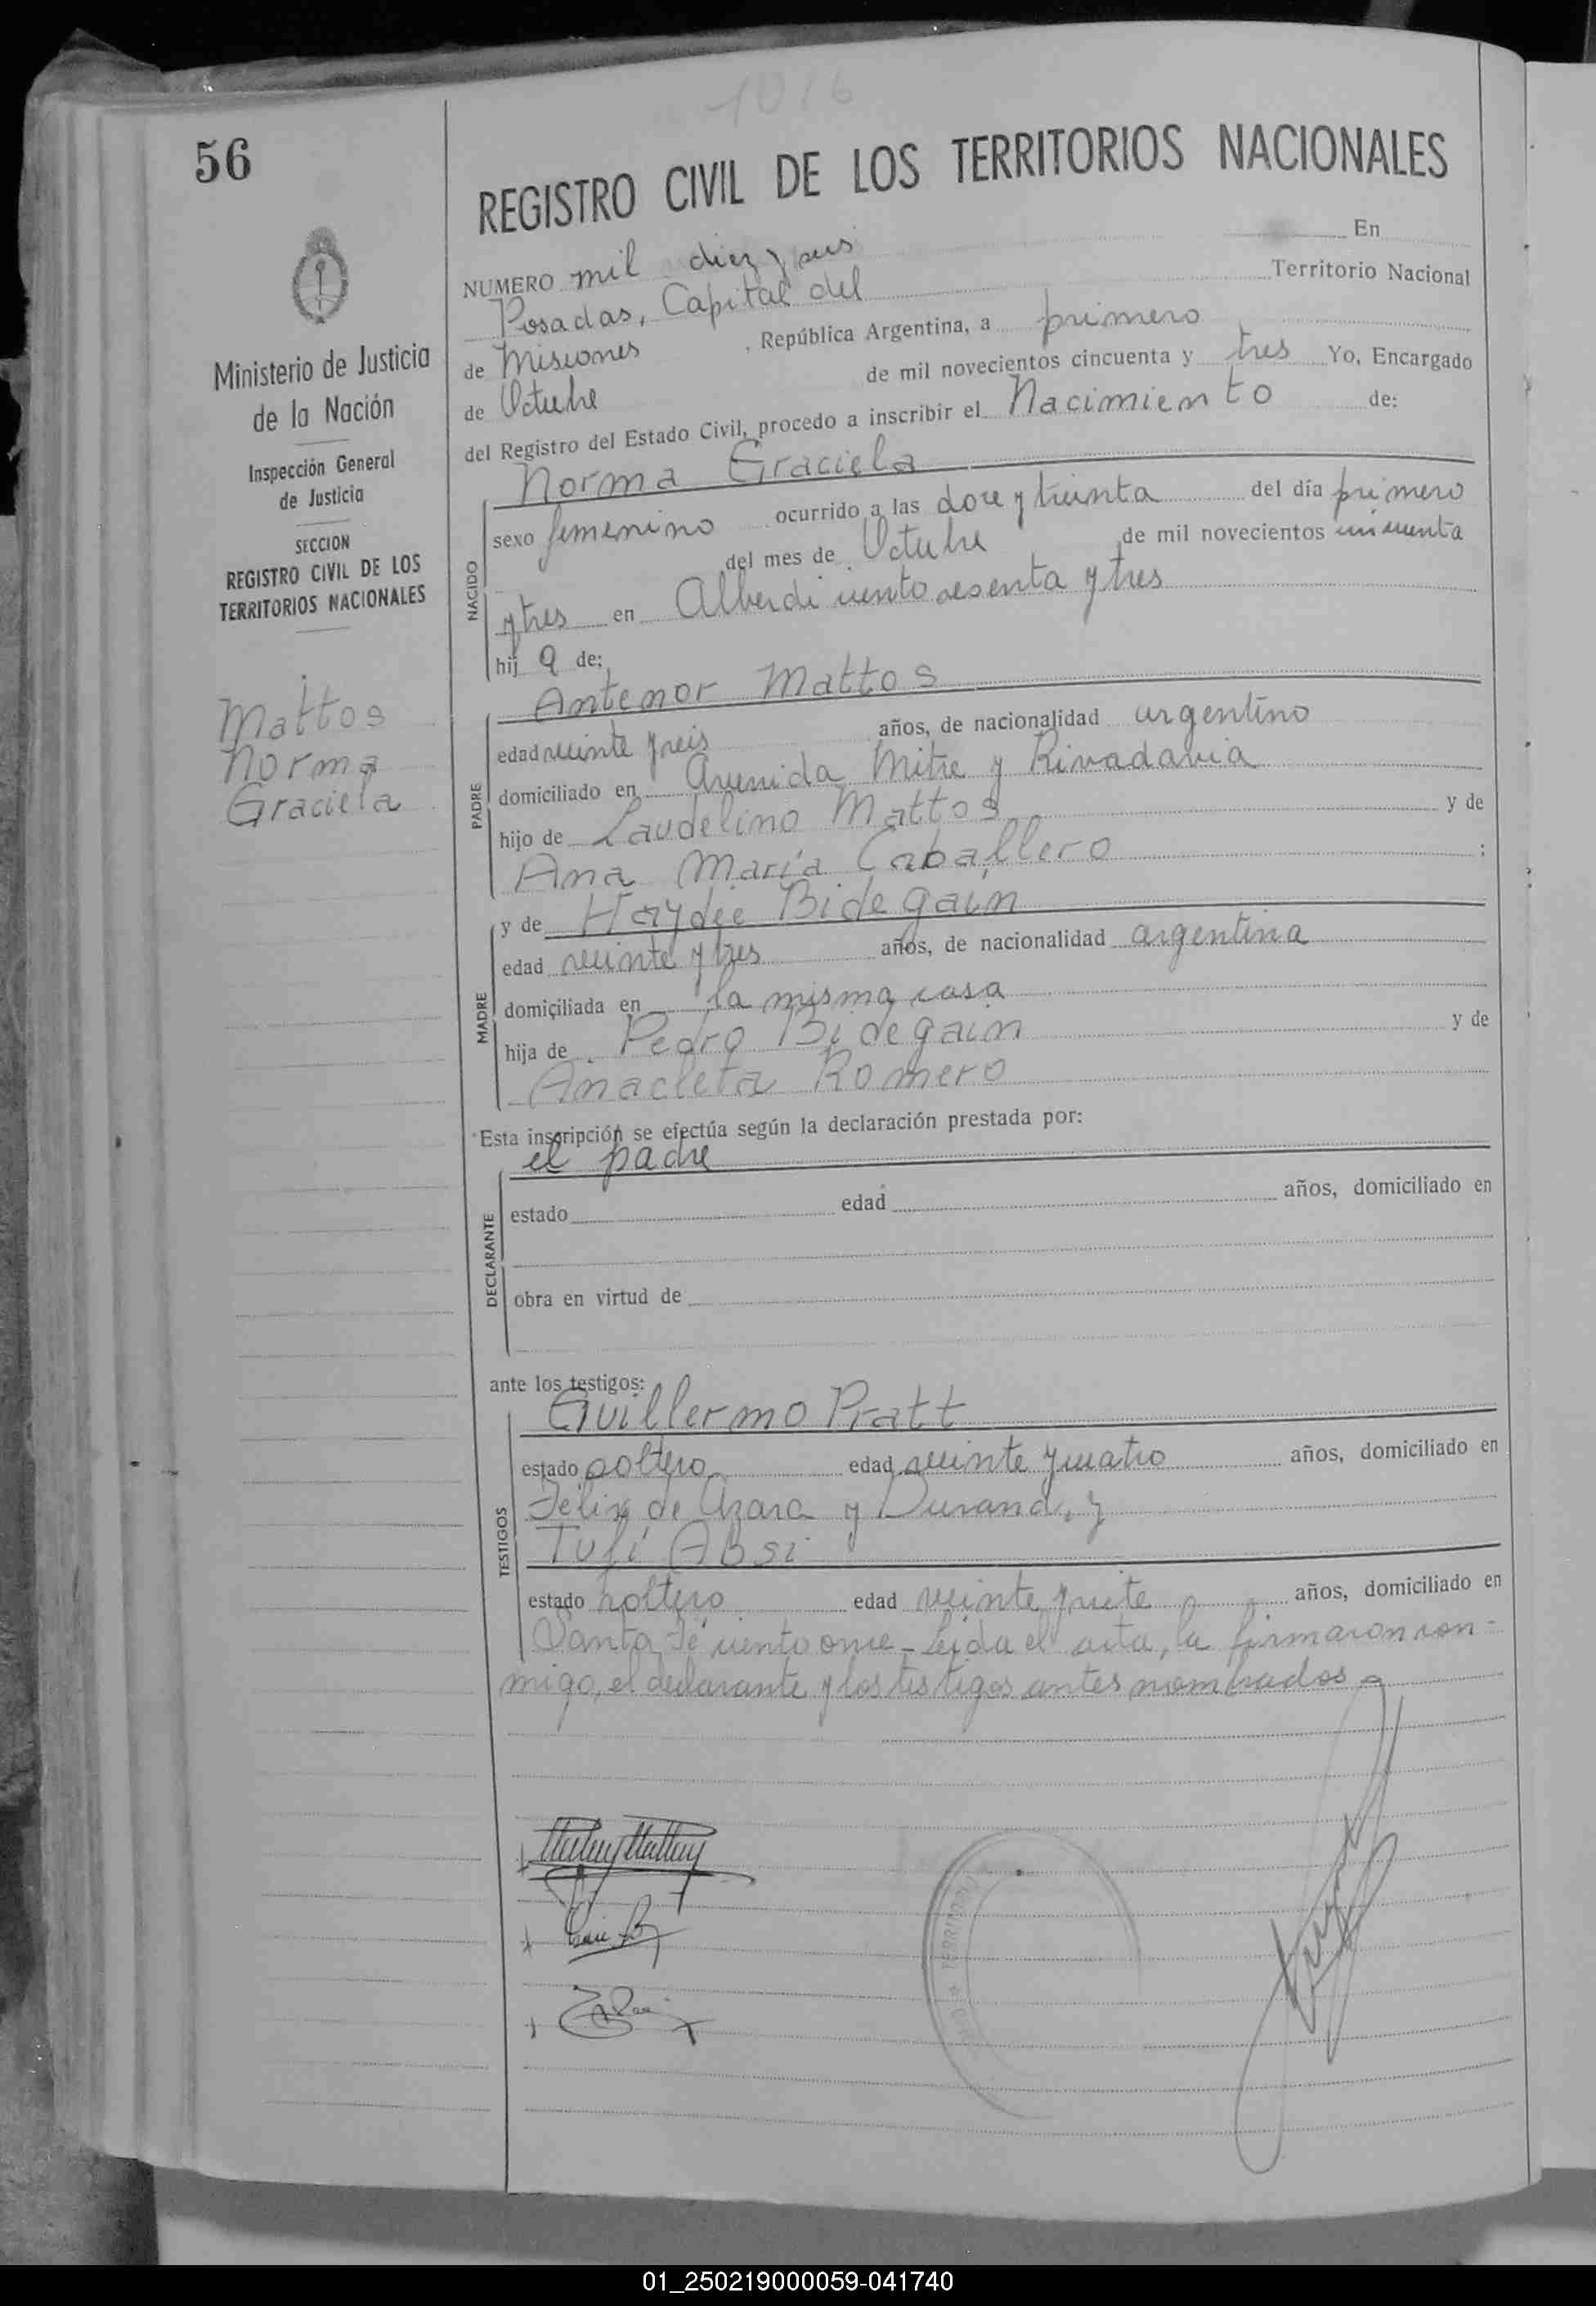 1016
56
REGISTRO CIVIL DE LOS TERRITORIOS NACIONALES
NUMERO mil diez y seis En
Posadas, Capital del Territorio Nacional
de Misiones, República Argentina, a primero
de Octubre de mil novecientos cincuenta y tres Yo, Encargado
del Registro del Estado Civil, procedo a inscribir el Nacimiento de:
Ministerio de Justicia
de la Nación
Inspección General
de Justicia
SECCION
REGISTRO CIVIL DE LOS
TERRITORIOS NACIONALES
Mattos
Norma
Graciela
NACIDO
Norma Graciela
sexo femenino ocurrido a las doce y treinta del día primero
del mes de Octubre de mil novecientos cincuenta
y tres en Alberdi ciento sesenta y tres
hij a de:
PADRE
Antenor Mattos
edad veinte y seis años, de nacionalidad argentino
domiciliado en Avenida Mitre y Rivadavia
hijo de Laudelino Mattos y de
Ana María Caballero :
MADRE
y de Haydée Bidegain
edad veinte y tres años, de nacionalidad argentina
domiciliada en la misma casa
hija de Pedro Bidegain y de
Anacleta Romero
Esta inscripción se efectúa según la declaración prestada por:
DECLARANTE
el padre
estado edad años, domiciliado en
obra en virtud de
ante los testigos:
TESTIGOS
Guillermo Pratt
estado soltero edad veinte y cuatro años, domiciliado en
Félix de Azara y Durand, y
Tufí Absi
estado soltero edad veinte y siete años, domiciliado en
Santa Fé ciento once - Leida el acta, la firmaron con-
migo, el declarante y los testigos antes nombrados
TERRITORIOS
01_250219000059-041740